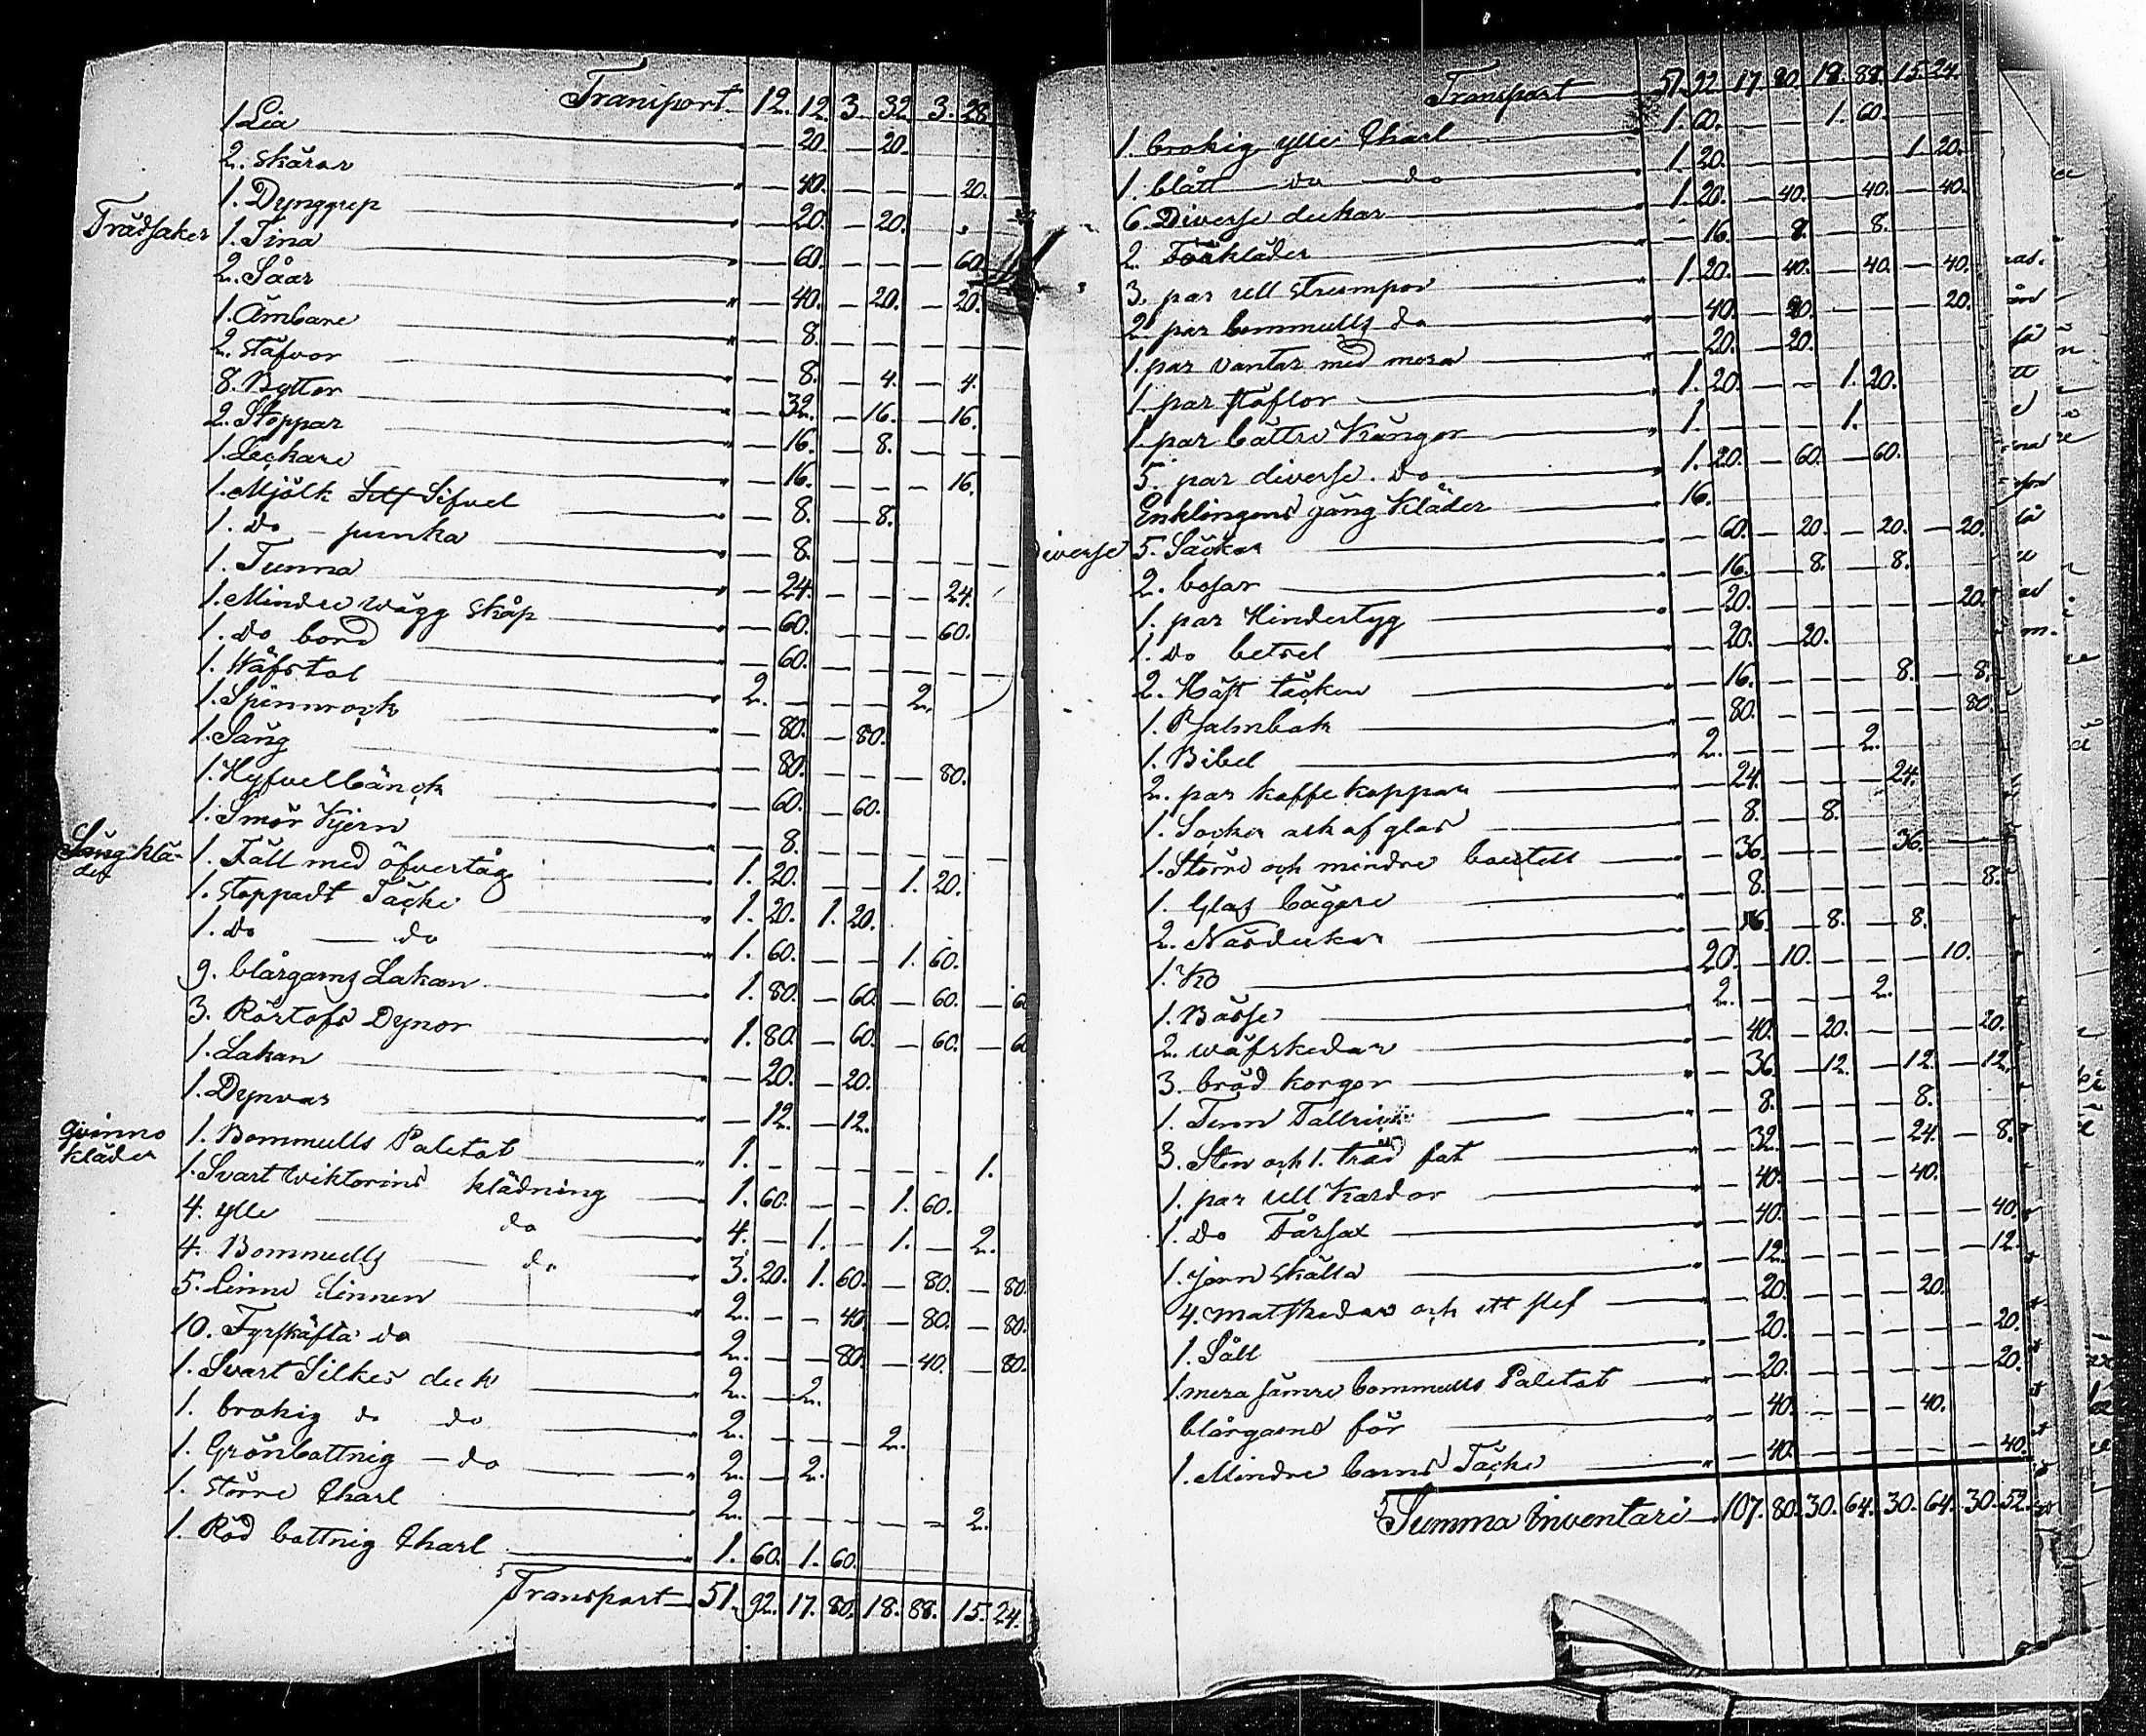 Transport 12. 12. 3. 32. 3. 28.
1. Lia — 20. — 20.
2. skäror — 40. — — — 20.
1. Dynggrep — 20. — 20.
Trädsaker 1. Tina — 60. — — — 60.
2. Såar — 40. — 20. — 20.
1. Ämbare — 8. — — — —
2. stäfvor — 8. — 4. — 4.
8. Byttor — 32. — 16. — 16.
2. Stoppar — 16. — 8. — — —
1. Leckare — 16. — — — 16.
1. Mjölk Sifvel — 8. — 8.
1. Do – punka — 8. — — — —
1. Tunna — 24. — — — 24.
1. Mindre wägg skåp — 60. — — — 60.
1. do bord — 60. — — — —
1. Wäfstol 2. — — — 2.
1. Spinnrock — 80. — 80.
1. Säng — 80. — — — 80.
1. Hyfvelbänck — 60. — 60.
1. Smör Kjern — 8. — — — —
Sängklä-
der 1. Fäll med öfvertåg 1. 20. — — 1. 20.
1. stoppadt Täcke 1. 20. 1. 20.
1. do — do 1. 60. — — 1. 60.
9. blårgarns Lakan 1. 80. — 60. — 60. — 60
3. Rörtofs Dynor 1. 80. — 60. — 60. — 60
1. Lakan — 20. — 20.
1. Dynvar — 12. — 12.
qvinno
kläder 1. Bommulls Paletot 1. — — — — — 1.
1. Svart Wiktorins klädning 1. 60. — — 1. 60.
4. ylle — do 4. — 1. — 1. — 2.
4. Bommulls — do 3. 20. 1. 60. — 80. — 80.
5. linne Linnen 2. — — 40. — 80. — 80.
10. Fyrskäfta do 2. — — 80. — 40. — 80.
1. Svart Silkes duk 2. — 2.
1. brokig do do 2. — — — 2.
1. Grönbottnig — do 2. — 2.
1. större Charl 2. — — — — — 2.
1. Röd bottnig Charl 1. 60. 1. 60.
Transport 51. 92. 17. 80. 18. 88. 15. 24.
Transport 51. 92. 17. 80. 18. 88. 15. 24.
1. brokig ylle Charl 1. 60. — — 1. 60.
1. blått — do — do 1. 20. — — — — 1. 20.
6. Diverse dukar 1. 20. — 40. — 40. — 40.
2. Förkläder — 16. — 8. — 8.
3. par ull strumpor 1. 20. — 40. — 40. — 40.
2. par bommulls do — 40. — 20. — — — 20.
1. par vantar med mera — 20. — 20.
1. par stöflor 1. 20. — — 1. 20.
1. par bättre Kängor 1. — — — 1.
5. par diverse. do 1. 20. — 60. — 60.
Enklingens gång Kläder 16.
iverse 5. Säckar — 60. — 20. — 20. — 20.
2. bosar — 16. — 8. — 8.
1. par Hindertyg — 20. — — — — — 20.
1. Do betsel — 20. — 20.
2. Häst täcken — 16. — — — 8. — 8.
1. Psalmbok — 80. — — — — — 80.
1. Bibel 2. — — — 2.
2. par kaffe koppar — 24. — — — 24.
1. Socker ask af glas — 8. — 8.
1. Större och mindre boutell — 36. — — — 36.
1. Glas bägare — 8. — — — — — 8.
2. Näsdukar — 16. — 8. — 8.
1. Ko 20. — 10. — — — 10.
1. Bösse 2. — — — 2.
2. wäfskedar — 40. — 20. — — — 20.
3. bröd korgor — 36. — 12. — 12. — 12.
1. Tenn Tallrik — 8. — — — 8.
3. Sten och 1. träd fat — 32. — — — 24. — 8.
1. par ull Kardor — 40. — — — 40.
1. Do Fårsax — 40. — — — — — 40.
1. jern skälla — 12. — — — — — 12.
4. matskedar och ett slef — 20. — — — 20.
1. Såll — 20. — — — — — 20.
1. mera sämre bommulls Paletot — 20. — — — — — 20.
blårgarns för — 40. — — — 40.
1. Mindre barns Täcke — 40. — — — — — 40.
Summa Inventari 107. 80. 30. 64. 30. 64. 30. 52.